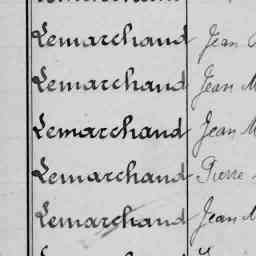 Lemarchand Jean
Lemarchand Jean M
Lemarchand Jean M
Lemarchand Pierre
Lemarchand Jean M